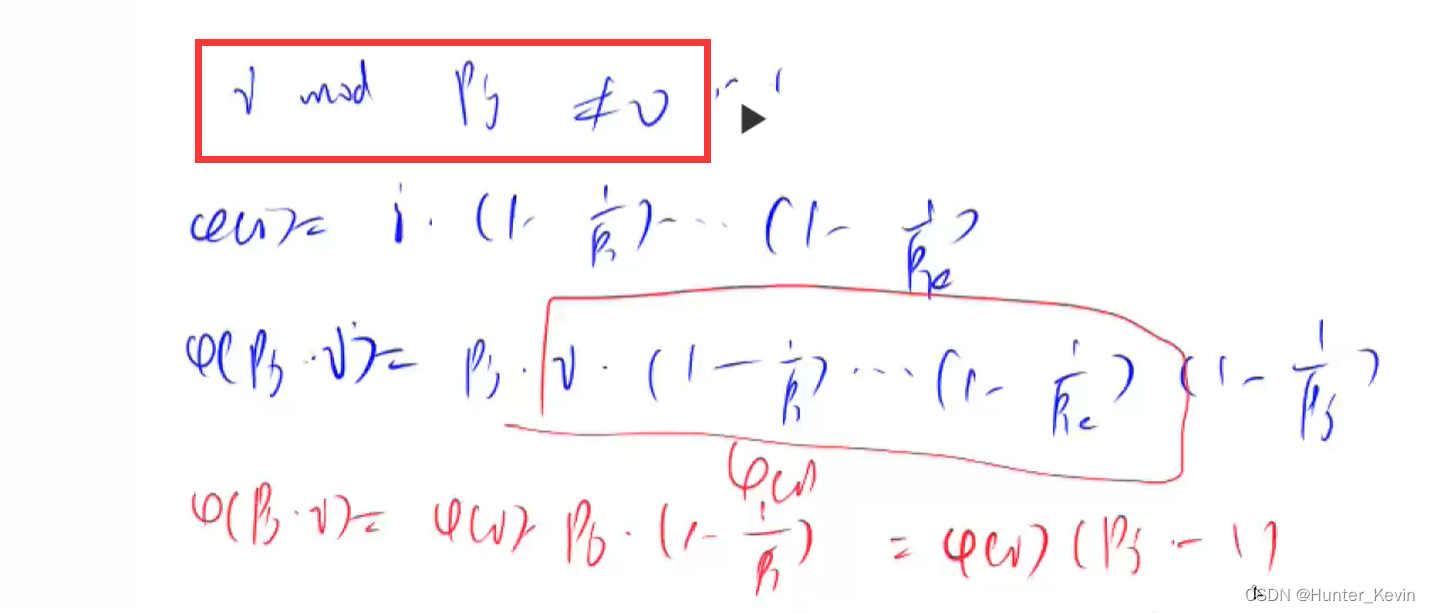 i mod Pj ≠ 0
φ(i) = i · (1 - 1/P1) ··· (1 - 1/Pk)
φ(Pj · i) = Pj · i · (1 - 1/P1) ··· (1 - 1/Pk) (1 - 1/Pj)
φ(i)
φ(Pj · i) = φ(i) · Pj · (1 - 1/Pj) = φ(i) (Pj - 1)
CSDN @Hunter_Kevin